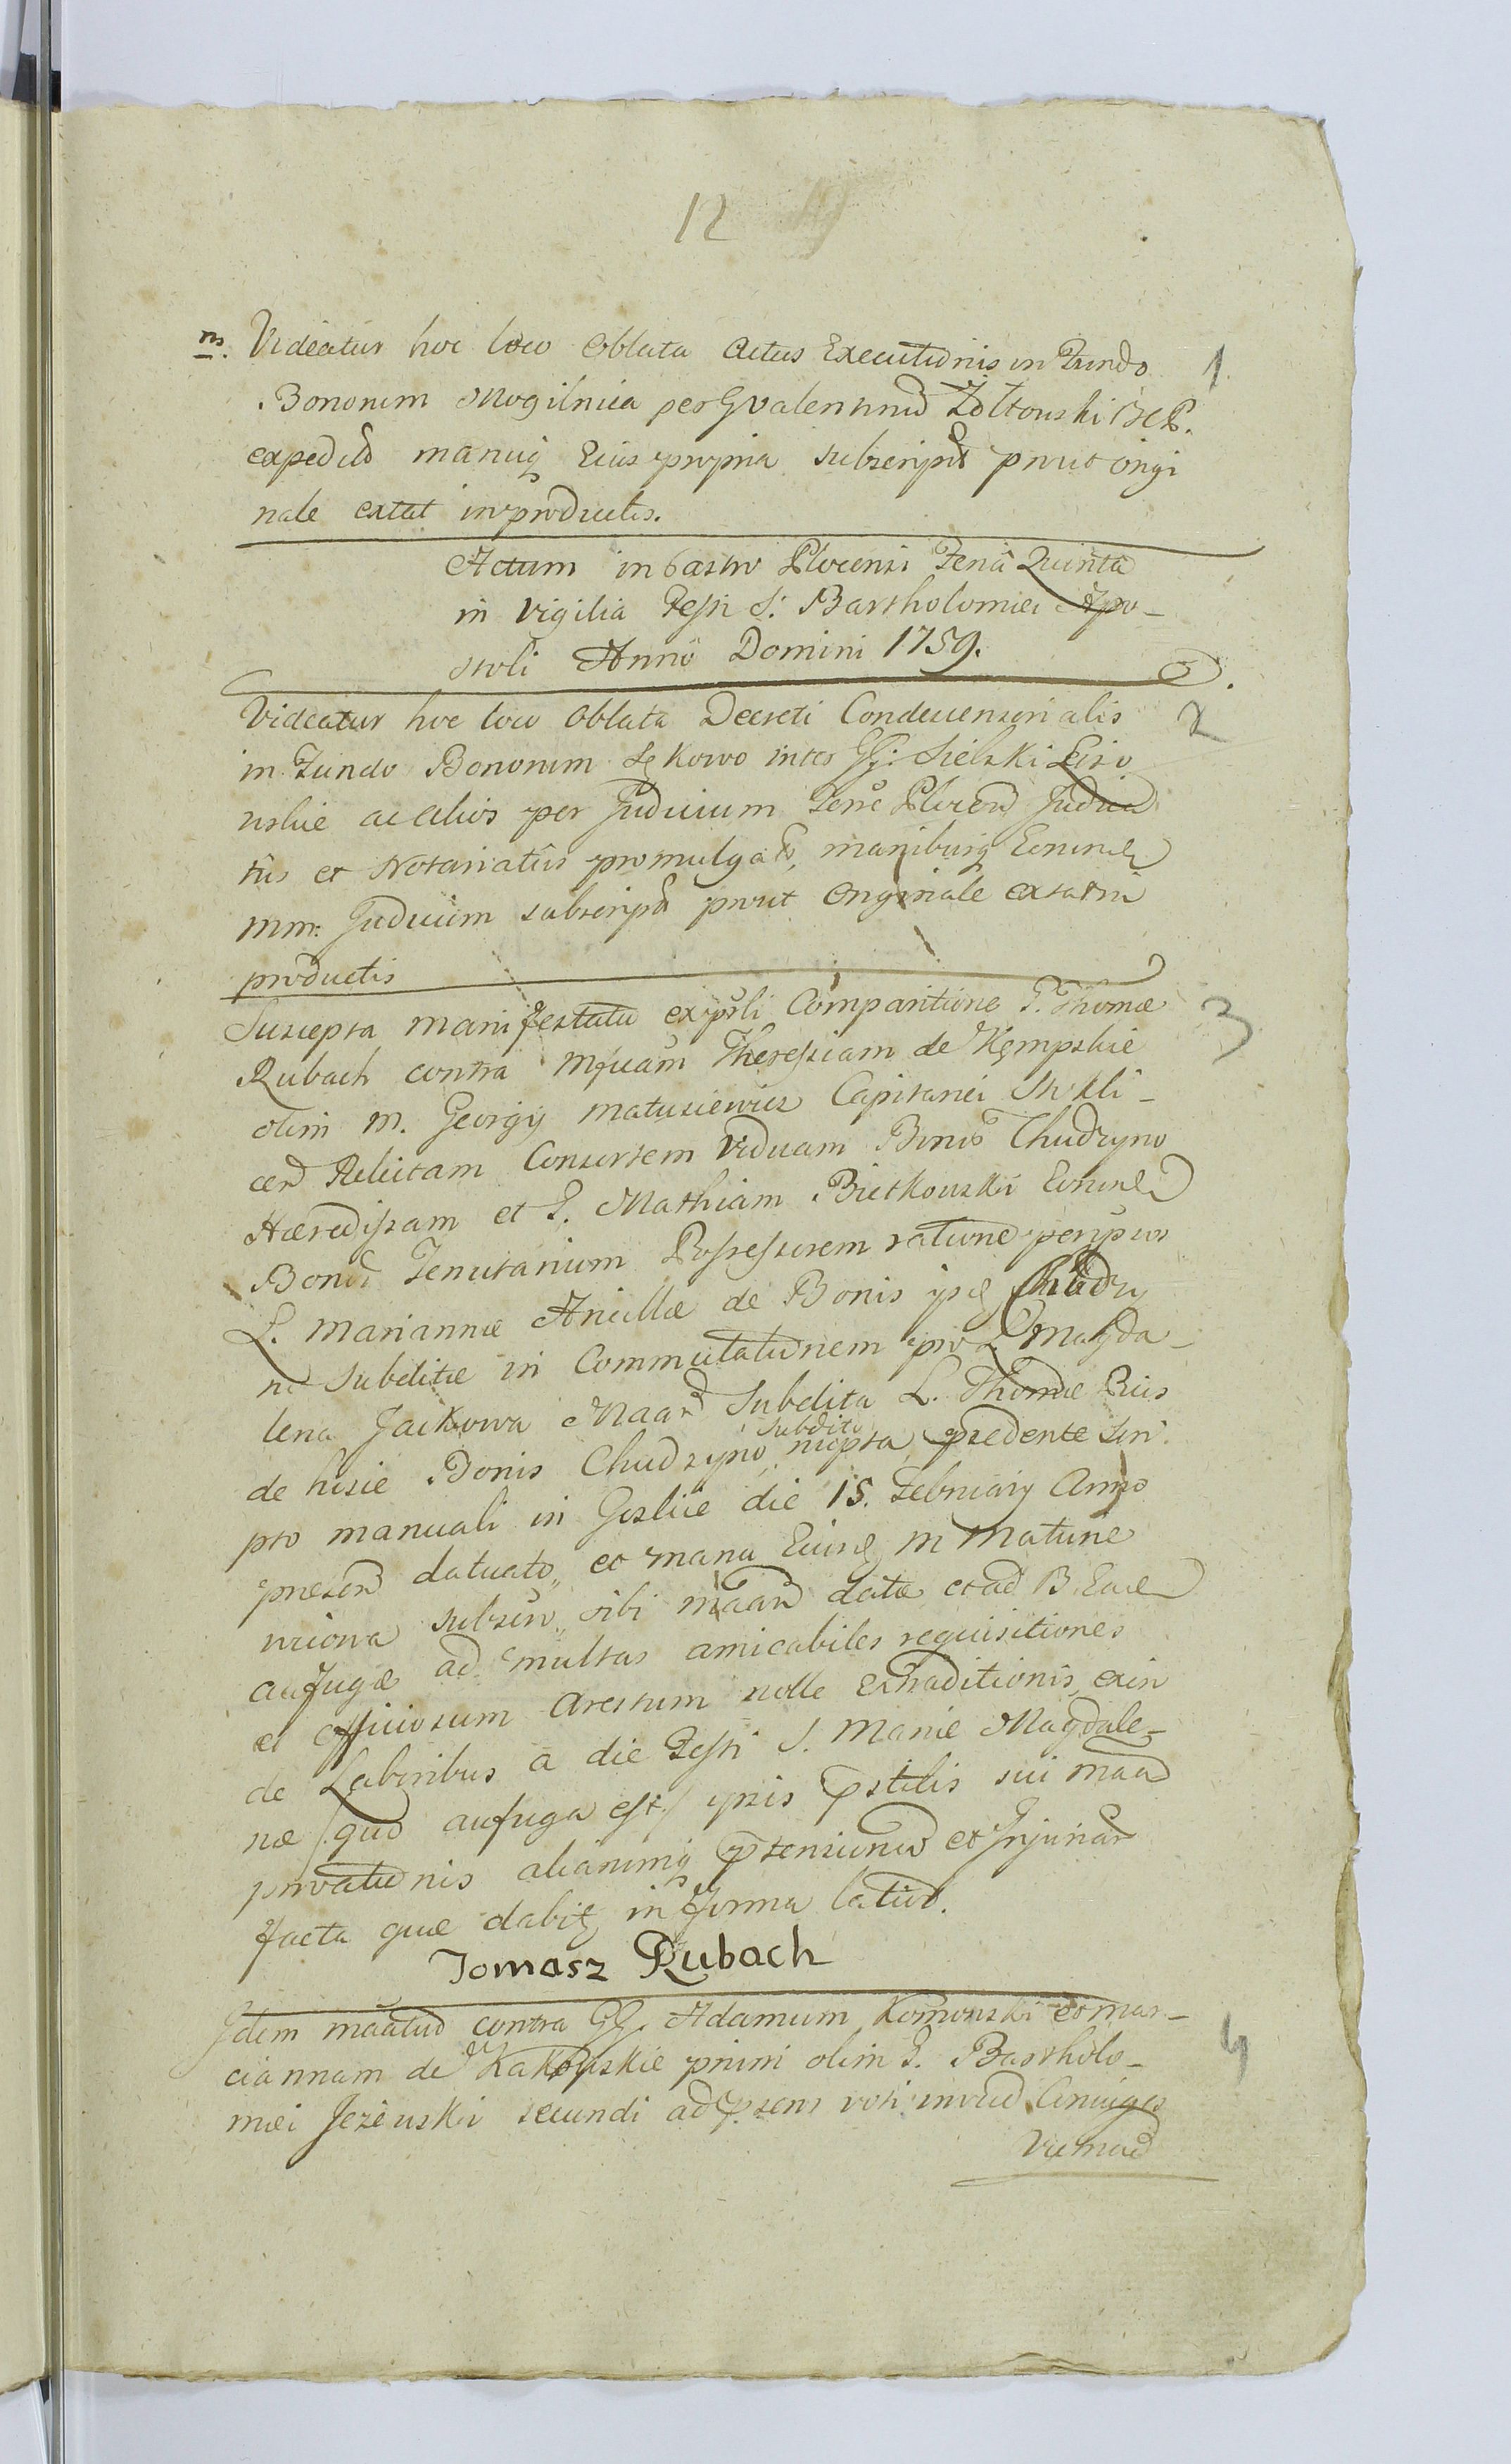 12
ns. Videatur hoc loco Oblata Actus Executionis in Fundo 1
Bonorum Mogilnica per G Valentinu Zołtowski
expediti manuq Eius propria subscripti prout origi
nale extat in productis.
Actum in Castro Plocensi Feria Quinta
in Vigilia Festi S. Bartholomæi Apo-
stoli Anno Domini 1759.
Videatur hoc loco Oblata Decreti Condescensorialis 2
in Fundo Bonorum Sękowo inter GG. Sielski
ac alios per Judicium Terre Plocen Judica
tus et Notariatus promulgati manibusq Eorund
mm Judicum subscripti prout Originale extat in
productis
Suscepta manifestatio ex psli Comparitione P. Thomæ 3
Rubach contra Mficam Theressiam de Kępskie
olim M. Georgij Matusiewicz Capitanei Stokli-
cen Relictam Consortem Viduam Bonor Chudzyno
Hæredissam et G. Mathiam Bietkowski Eorund
Bonor Tenutarium Possessorem ratione per ipsos
L. Mariannæ Ancillæ de Bonis ips Chudzy
no Subditæ in Commutationem pro L Magda-
lena Jackowa Maan Subdita L. Thomæ Eius
de hisce Bonis Chudzyno subdito nupta, præcedente Scri
pto manuali in Goslice die 15. Februarij Anno
præsen datuato, et manu Eiusd M Matusie
wiczowa subscri. sibi maan datæ et ad B. Ead
aufugæ ad multas amicabiles requisitiones
et officiosum Arestum nolle extraditionis, exin
de Laboribus a die Festi S. Mariæ Magdale-
næ /. quo aufuga est / ipsis pstitis sui maan
privationis aliarumq ptensionu et Injuriar
facta quæ dabit in forma latior.
Tomasz Rubach
Idem maatur contra GG. Adamum Komorski et Mar- 4
ciannam de Kakowskie primi olim G. Bartholo-
mæi Jeżewski secundi ad psens voti invicd Conjuges